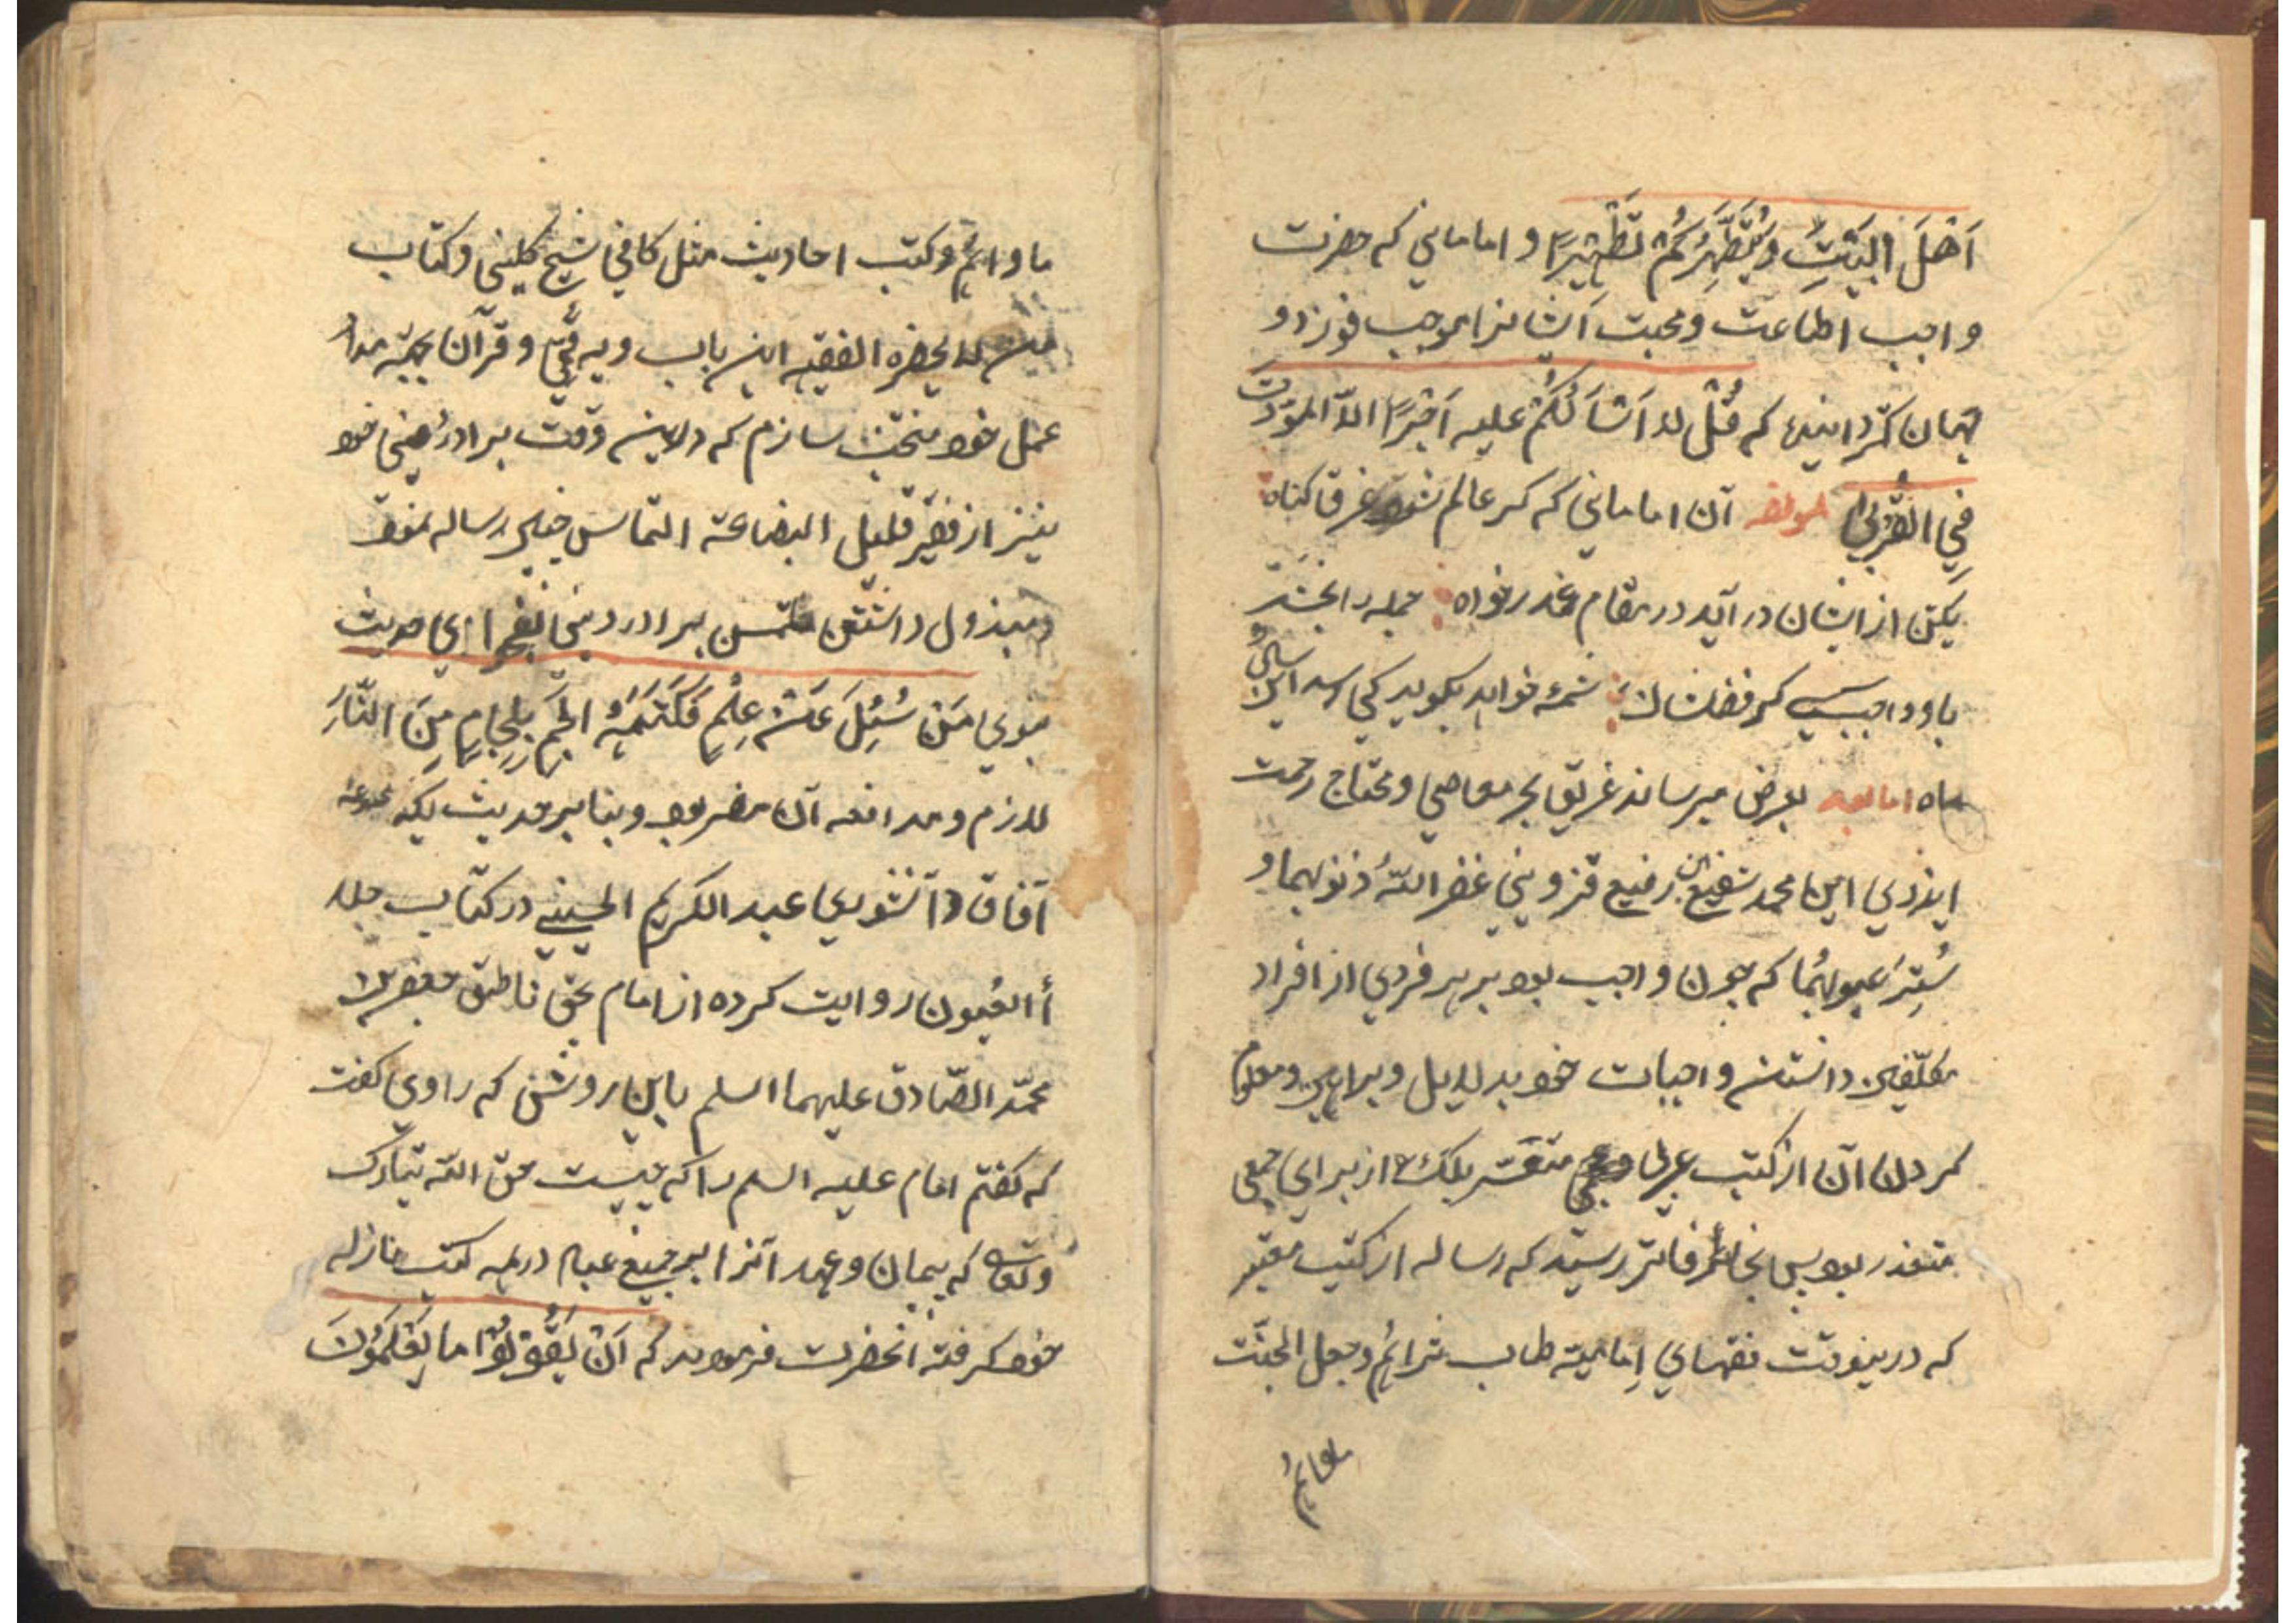 اَهْلَ الْبَیْتِ وَیُطَهِّرَکُمْ تَطْهِیْرًا و امامانی که حضرت
واجب اطاعت و محبت آنشانرا موجب فوز دو
جهان کردانیده که قُلْ لا اَسْاَلُکُمْ علیه اَجْرًا الاّ المودّت
فِی القُرْبی لمولفه آن امامانی که کر عالم شود غرق کناه
یکتن از ایشان در آید در مقام عذرخواه جمله را بخشد
باو واجب کر فضلشان شمهٔ خواهد بکوید کی رسد این
اما بعد بعرض میرساند غریق بحر معاصی و محتاج رحمت
ایزدی ابن محمد شفیع رفیع قزوینی غفر اللّه ذنوبهما و
سُتِرَ عیوبهُما که چون واجب بود بر هر فردی از افراد
مکلّفین دانستن واجبات خود بدلایل و براهین و معلوم
کردن آن از کتب عربی متعسّر بلک از برای جمعی
متعذر بود پس بخاطر فاتر رسید که رساله از کتب معتبر
که درینوقت فقهای اِمامیّه طاب ثرائم وجعل الجنّت
ماوائم
ماوائم و کتب احادیث مثل کافی شیخ کلینی و کتاب
من لا یحضره الفقیه ابن بابویه قمّی و قرآن بجهة
عمل خود منتخب سازم که در این وقت برادر دینی خود
نیز از فقیر قلیل البضاعة التماس چنین رساله نمود
مبذول داشتن ملتمس برادر دینی بفحوای حدیث
نبوی مَن سُئِلَ عَنْ عِلْمٍ فَکَتَمَهُ الجَم بِلِجامٍ مِنَ النّارِ
لازم و مدافعه آن مضر بود و بنا بر حدیث یکه
آفاق عبد الکریم الحسینی در کتاب جلا
أ العُیون روایت کرده از امام بحق ناطق جعفر بن
محمّد الصّادق علیهما السلم باین روش که راوی کفت
که کفتم امام علیه السلم را که چیست حق اللّه تبارک
وتعالی که پیمان و عهد آنرا بر جمیع عباد در همه کتب منازله
خود کرفته انحضرت فرمودند که اَنْ یَقُوْلُوْا ما یَعْلَمُوْنَ